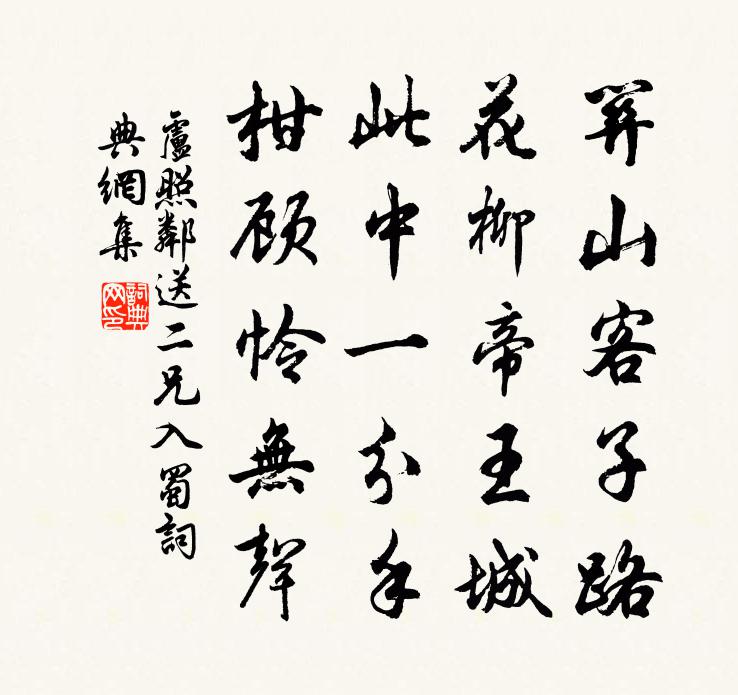 関山客子路
花柳帝王城
此中一分手
相顾怜無聲
盧照鄰送二兄入蜀詞
典網集
詞典
网印